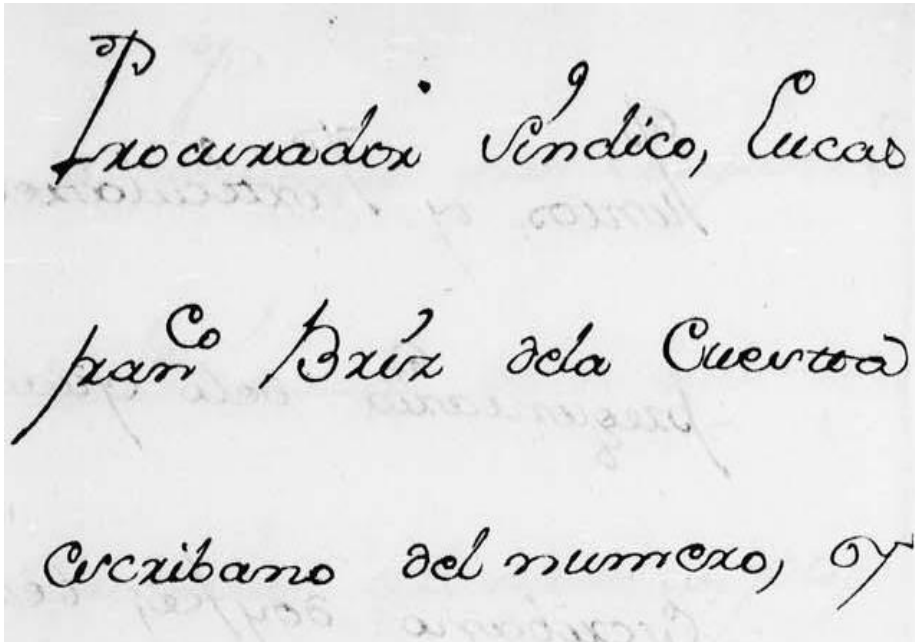 Procurador síndico, Lucas
fran.co Bríz dela Cuesta
escribano del numero, y